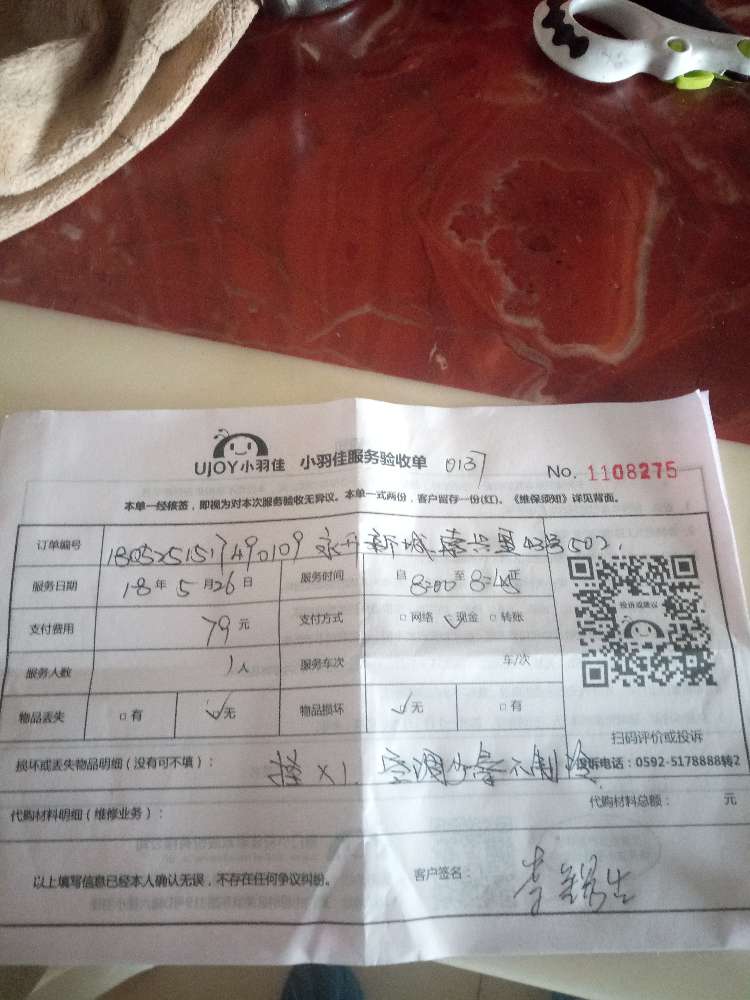 UJOY小羽佳 小羽佳服务验收单 0137 No. 1108275
本单一经核签，即视为对本次服务验收无异议。本单一式两份，客户留存一份(红)。《维保须知》详见背面。
订单编号
服务日期 18年5月26日 服务时间 自8:00至8:45
投诉或建议
支付费用 79元 支付方式 □网络 ✓现金 □转账
服务人数 1人 服务车次 车/次
物品丢失 □有 ✓无 物品损坏 ✓无 □有
扫码评价或投诉
损坏或丢失物品明细（没有可不填）： 挂×1 空调 不制冷
投诉电话：0592-5178888转2
代购材料明细（维修业务）： 代购材料总额： 元
以上填写信息已经本人确认无误，不存在任何争议纠纷。 客户签名： 李